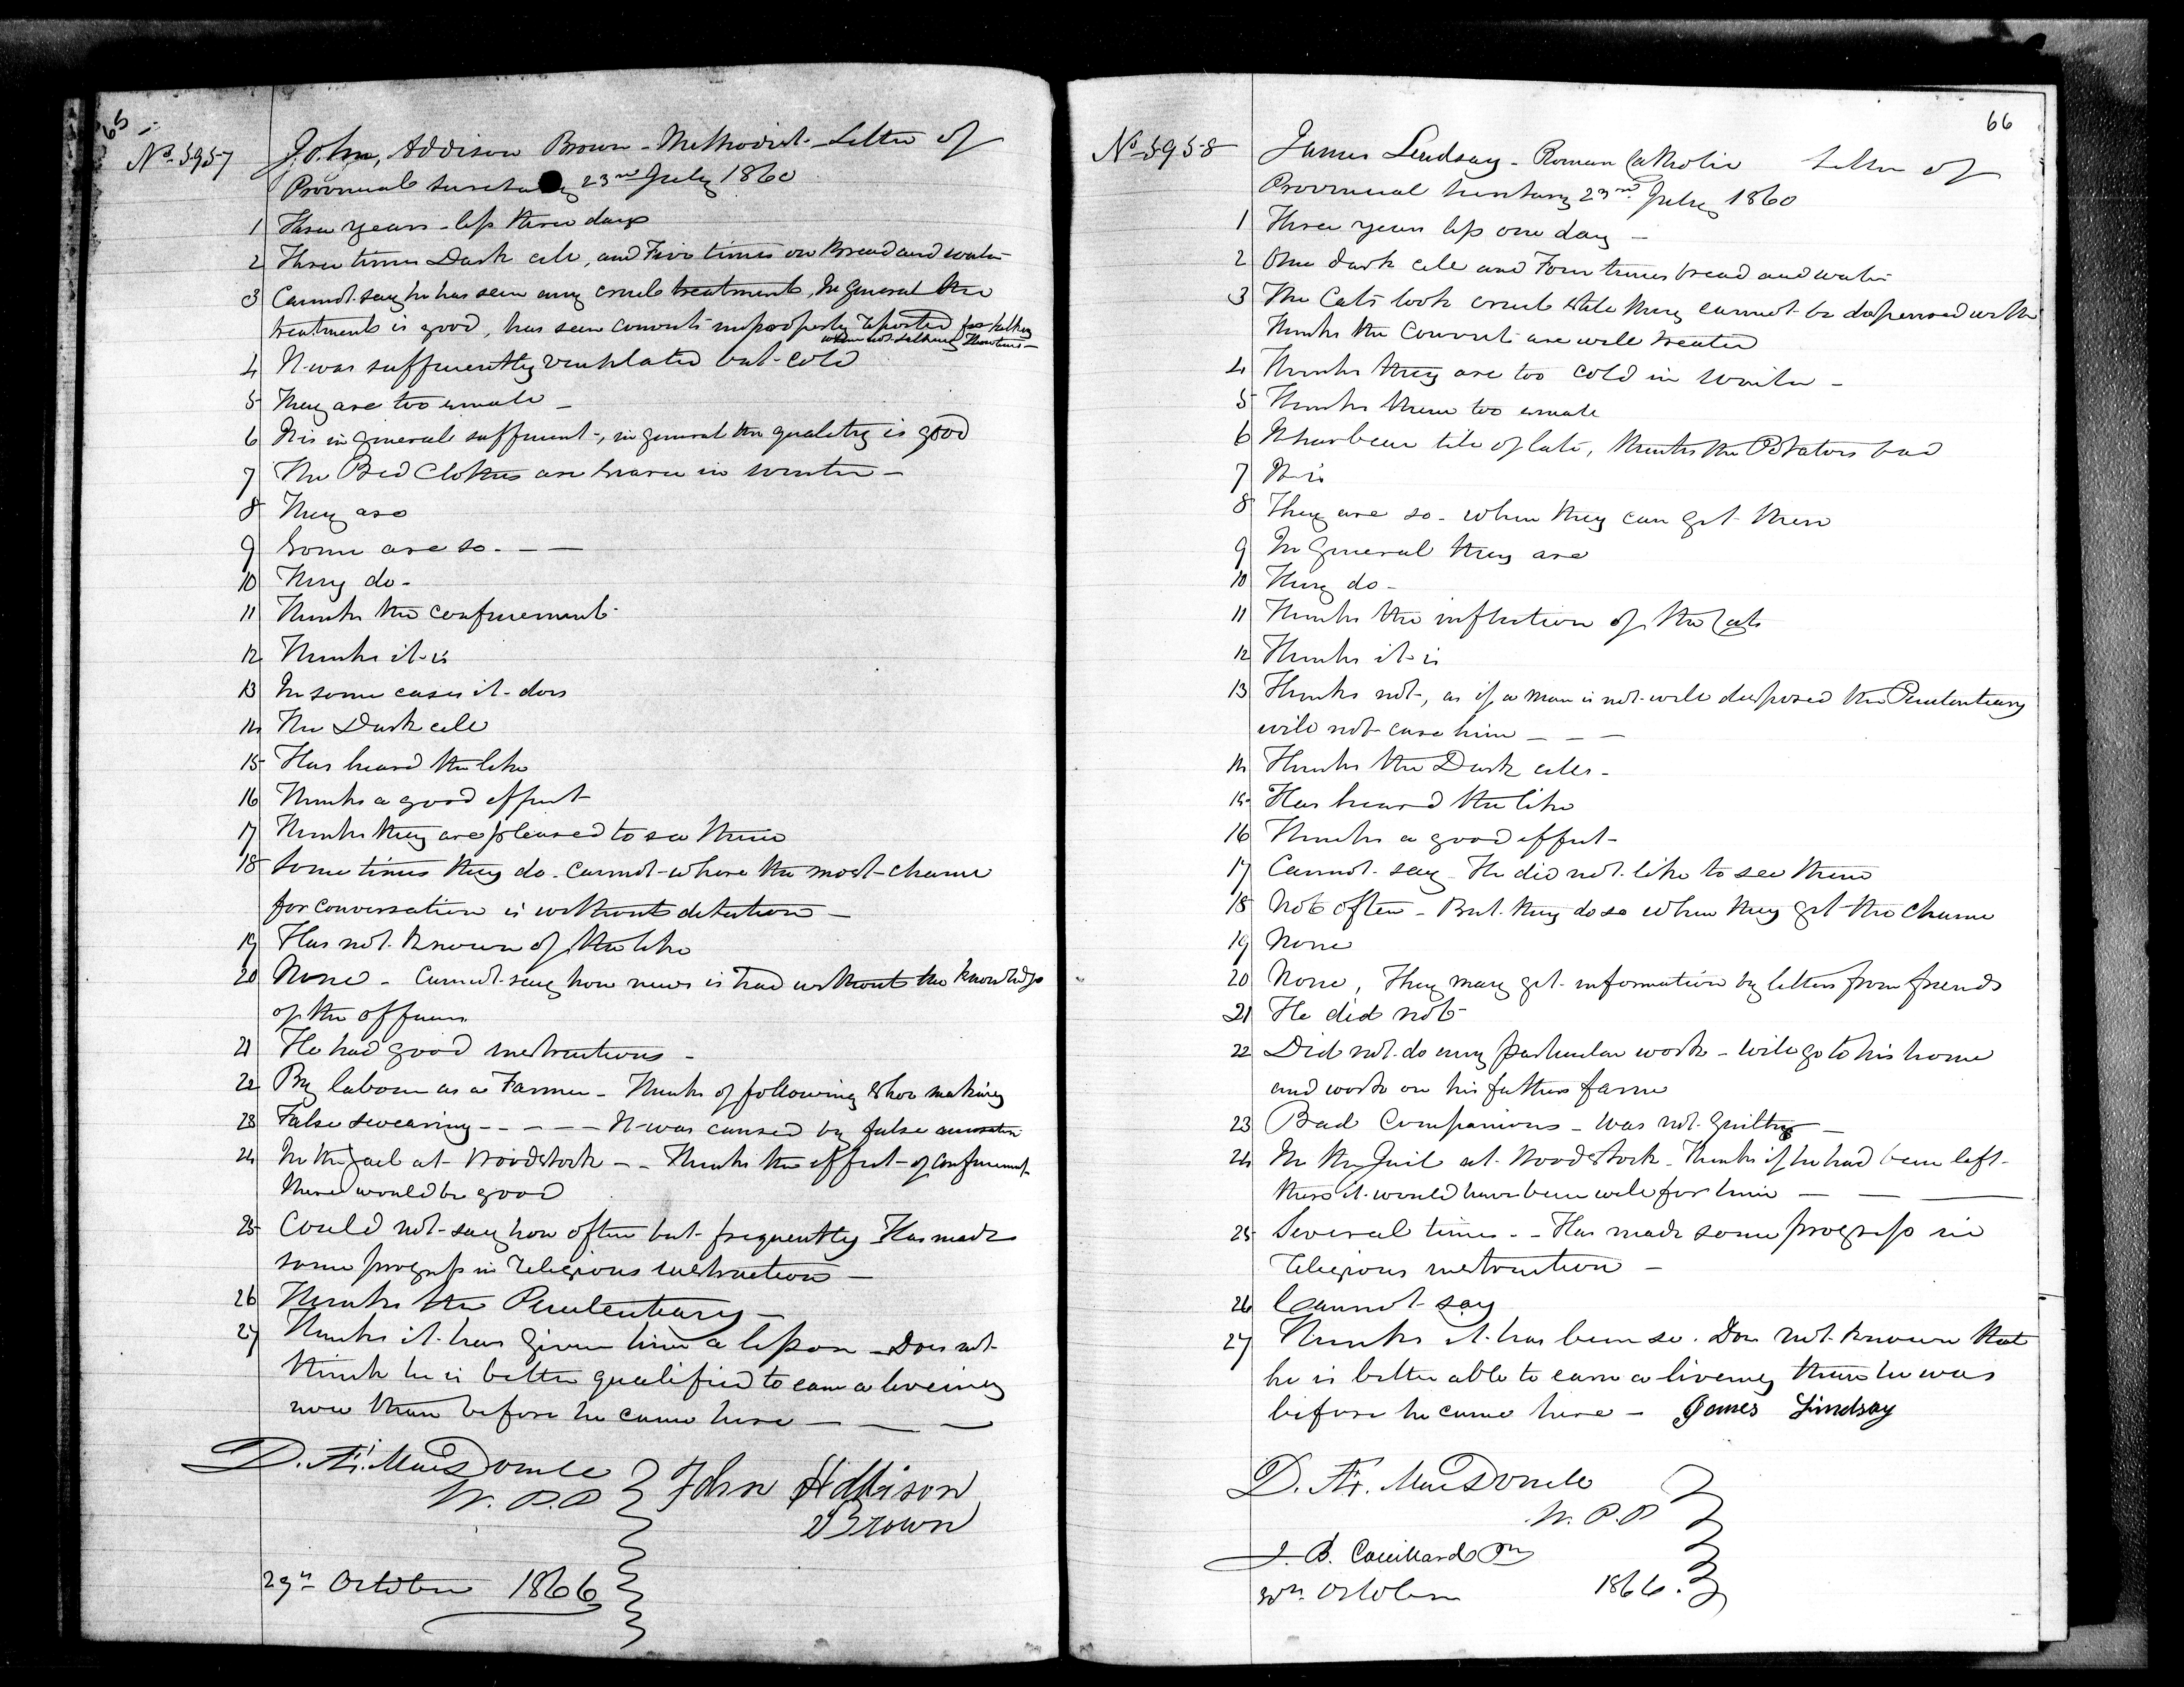 65
No. 5957
John, Addison Brown - Methodist - Letter of
Provincial Secretary 23rd July 1860
1 Three years - less three days
2 Three times Dark cell, and Five times on Bread and water
3 Cannot say he has seen any cruel treatment, In general the
treatment is good, has seen convicts improperly reported for talking
when not talking
4 It was sufficiently ventilated but cold
5 They are too small -
6 It is in general sufficient, in general the quality is good
7 The Bed Clothes are scarce in winter -
8 They are
9 Some are so. - -
10 They do -
11 Thinks the confinement
12 Thinks it is
13 In some cases it does
14 The Dark cell
15 Has heard the like
16 Thinks a good effect
17 Thinks they are pleased to see them
18 Some times they do. Cannot - where the most chance
for conversation is without detection -
19 Has not known of the like
20 None - Cannot say how news is had without the knowledge
of the officers
21 He had good instructions -
22 By labour as a Farmer - Thinks of following Shoe making
23 False swearing - - - - - It was caused by false accusation
24 In the Jail at Woodstock - - Thinks the effect of confinement
there would be good
25 Could not say how often but frequently Has made
some progress in religious instruction -
26 Thinks the Penitentiary -
27 Thinks it has given him a lesson - Does not
think he is better qualified to earn a liveing
now than before he came here - - -
D. Æ. MacDonell
W. P. P
John Addison
Brown
29th October 1866
66
No. 5958
James Lindsay - Roman Catholic Letter of
Provincial Secretary 23rd July 1860
1 Three years less one day -
2 One dark cell and Four times bread and water
3 The Cats look cruel still they cannot be dispensed with
Thinks the Convicts are well treated
4 Thinks they are too cold in winter -
5 Thinks them too small
6 It has been till of late, thinks the Potatoes bad
7 It is
8 They are so - when they can get them
9 In general they are
10 They do -
11 Thinks the infliction of the Cats
12 Thinks it is
13 Thinks not, as if a man is not well disposed the Penitentiary
will not cure him - - -
14 Thinks the Dark cells -
15 Has heard the like
16 Thinks a good effect -
17 Cannot say He did not like to see them
18 Not often - But they do so when they get the chance
19 None
20 None, They may get information by letters from friends
21 He did not
22 Did not do any particular work - will go to his home
and work on his fathers farm
23 Bad Companions - was not guilty -
24 In the Jail at Woodstock - Thinks if he had been left
there it would have been well for him - - -
25 Several times - - Has made some progress in
religious instruction -
26 Cannot say
27 Thinks it has been so. Does not known that
he is better able to earn a liveing than he was
before he came here - James Lindsay
D. Æ. MacDonell
W. P. P
J. B. Couillard
30th October 1866.